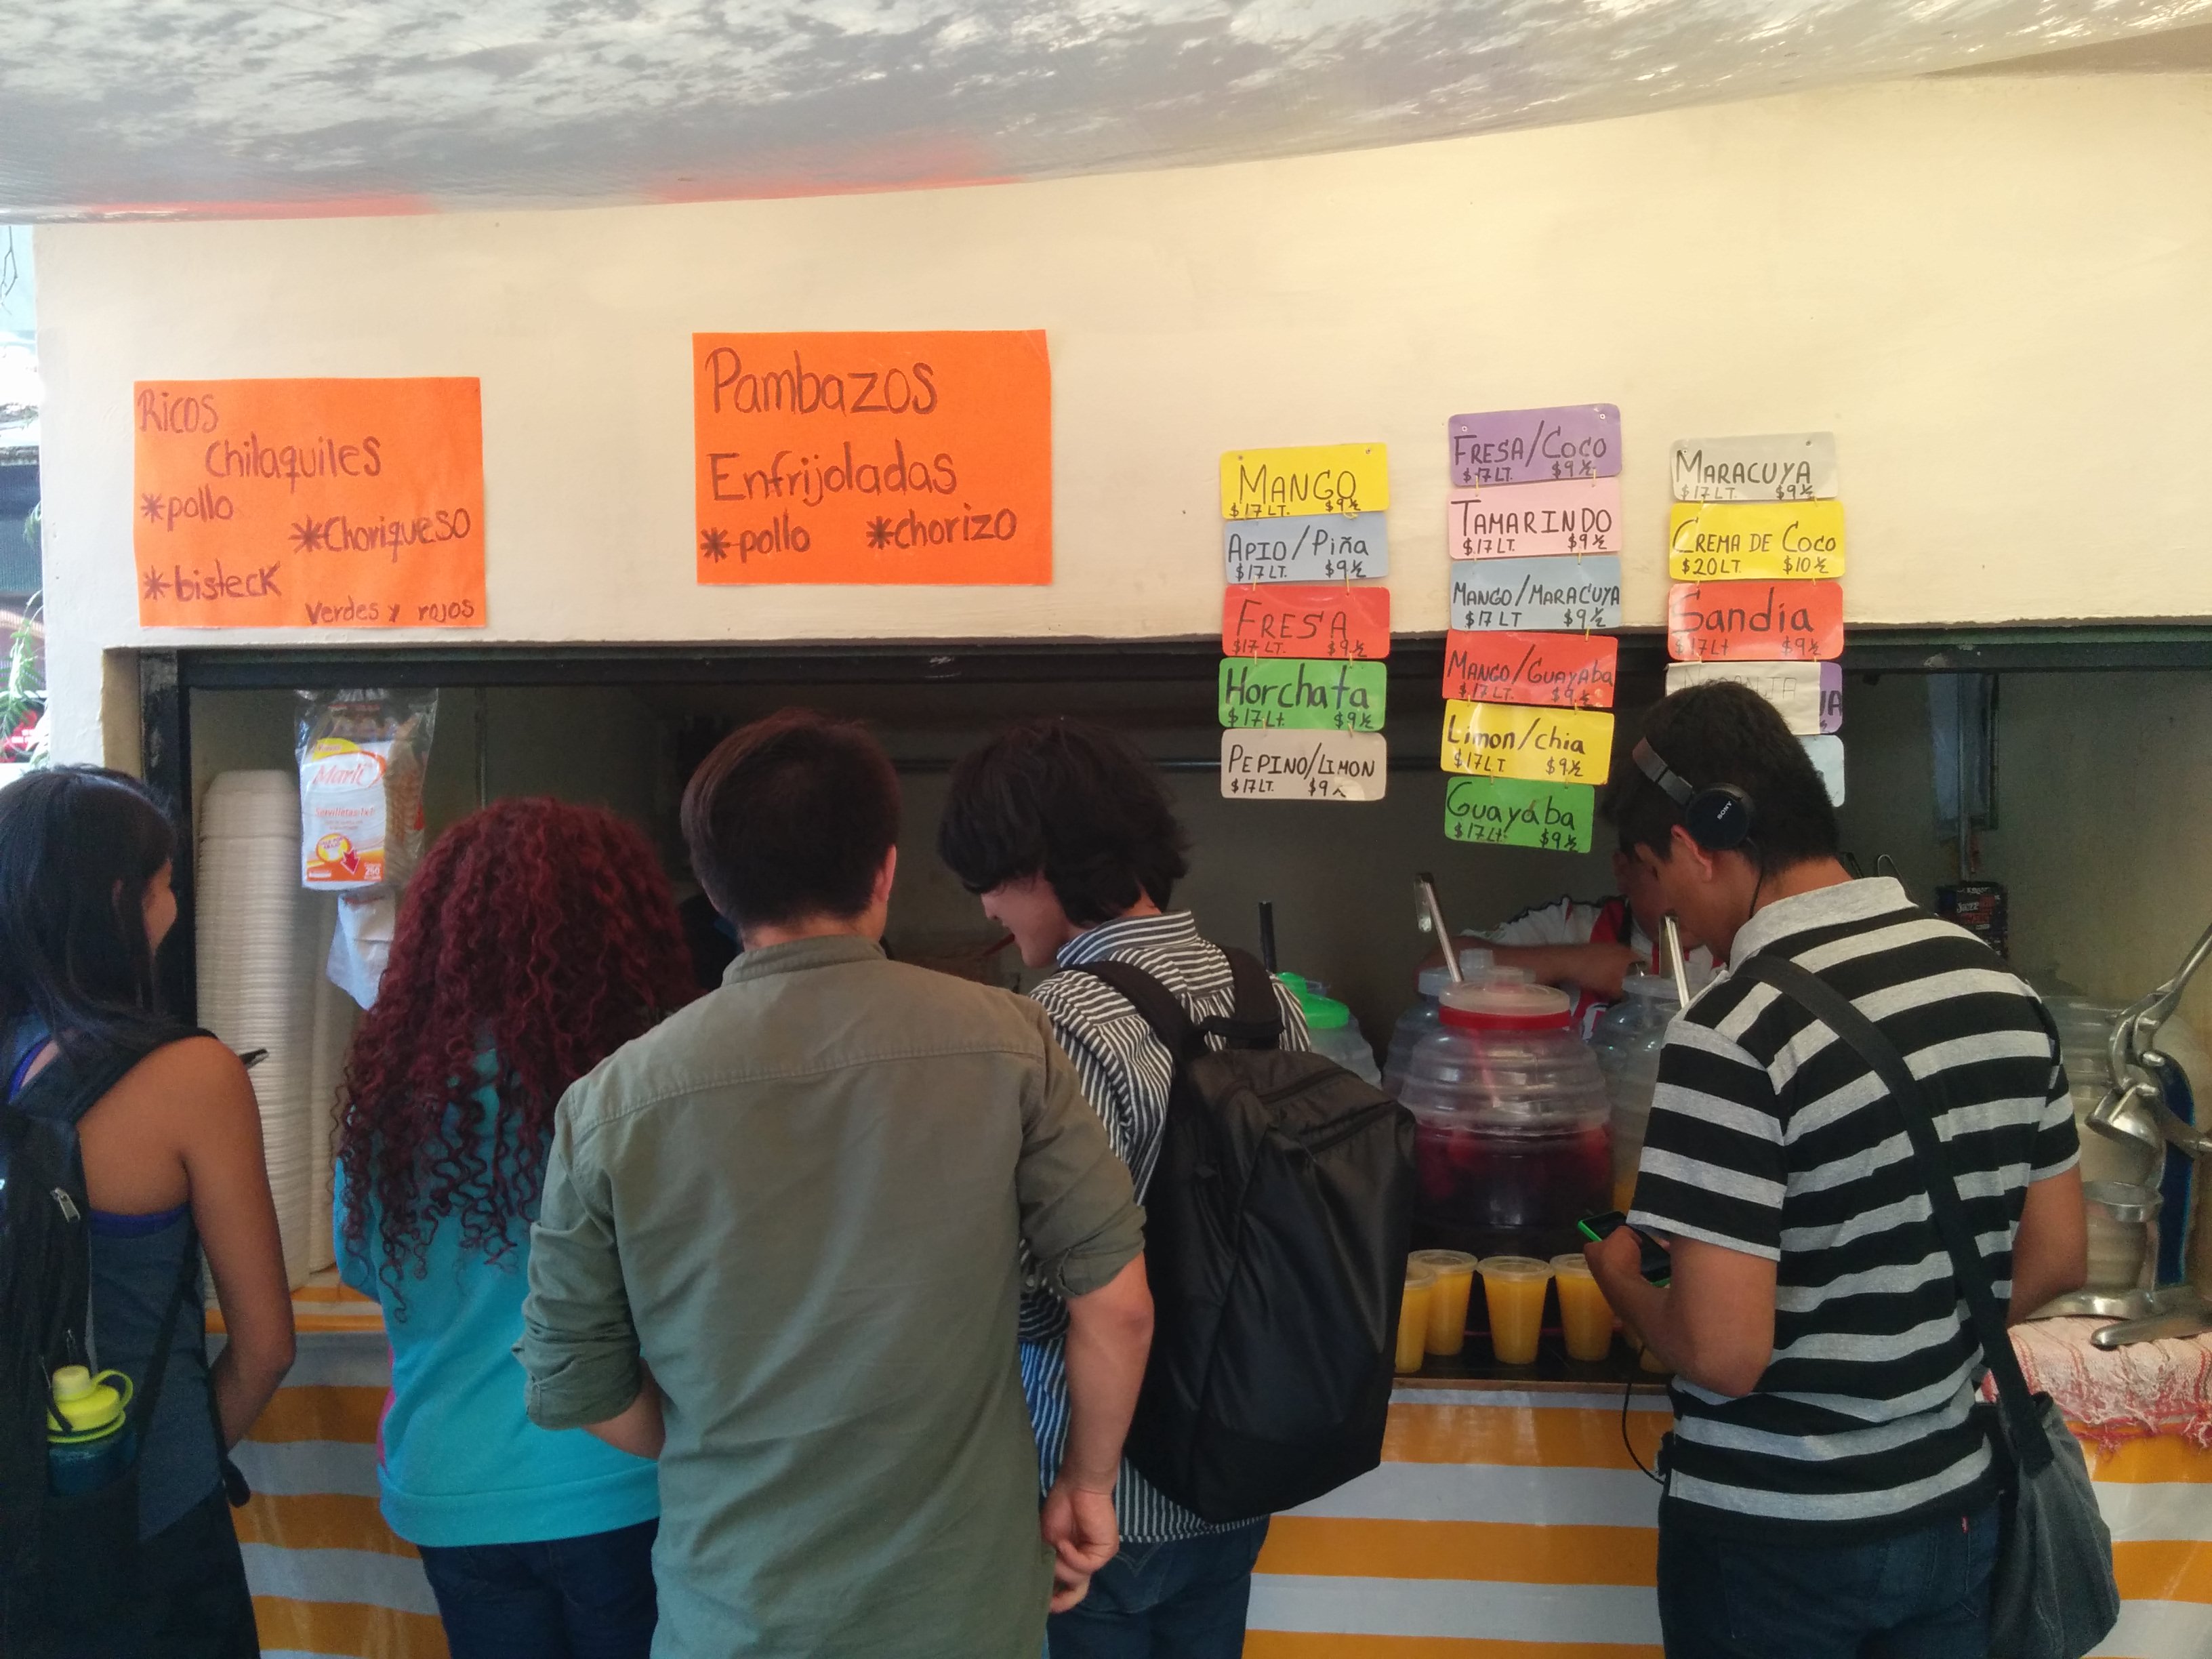 Ricos
Chilaquiles
*pollo
*Choriqueso
*bisteck
Verdes y rojos
Pambazos
Enfrijoladas
*pollo *chorizo
MANGO
$17 LT. $9½
APIO/Piña
$17 LT. $9½
FRESA
$17 LT. $9½
Horchata
$17 Lt. $9½
PEPINO/LIMON
$17 LT. $9½
FRESA/COCO
$17 LT. $9½
TAMARINDO
$17 LT. $9½
MANGO/MARACUYA
$17 LT $9½
MANGO/GUAYAba
$17 LT. $9½
Limon/chia
$17 LT. $9½
Guayaba
$17 Lt. $9½
MARACUYA
$17 LT. $9½
CREMA DE COCO
$20 LT. $10½
Sandia
$17 Lt $9½
NARANJA
Marli
Servilletas
250
SONY